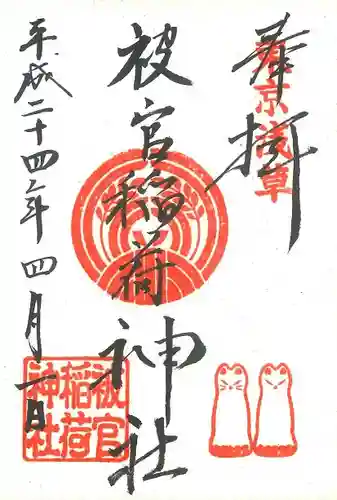 奉拝
東京浅草
被官稲荷神社
平成二十四年四月一日
被官
稲荷
神社